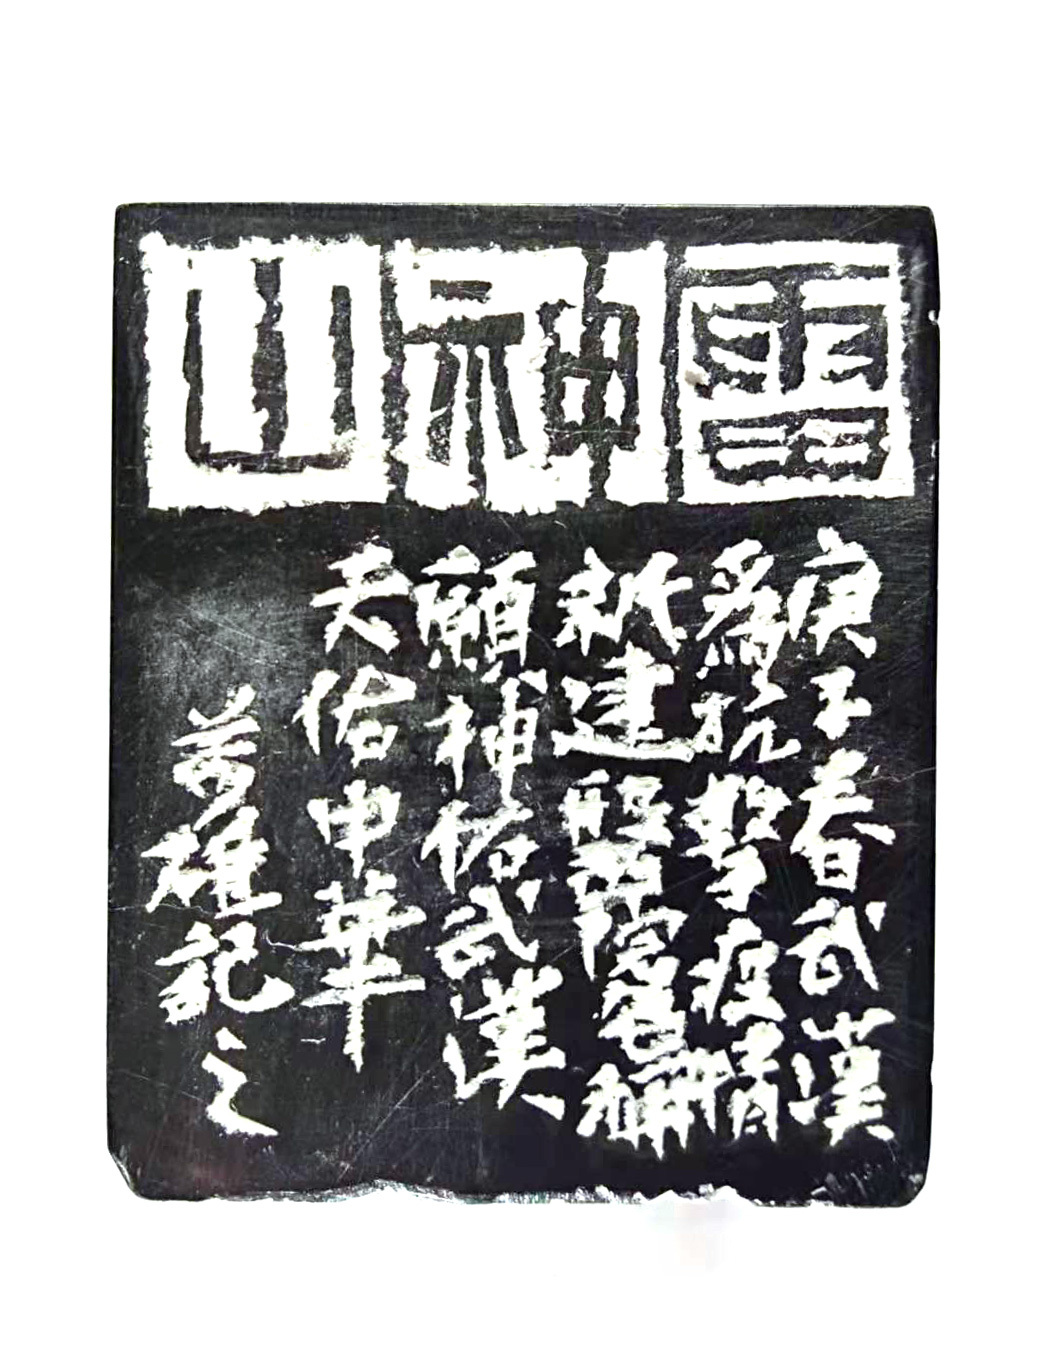 雷神山
庚子春武漢
爲抗擊疫情
新建醫院名稱
願神佑武漢
天佑中華
雄記之